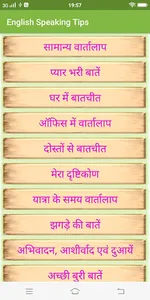 3G
19:57
English Speaking Tips
सामान्य वार्तालाप
प्यार भरी बातें
घर में बातचीत
ऑफिस में वार्तालाप
दोस्तों से बातचीत
मेरा दृष्टिकोण
यात्रा के समय वार्तालाप
झगड़े की बातें
अभिवादन, आर्शीवाद एवं दुआयें
अच्छी बुरी बातें